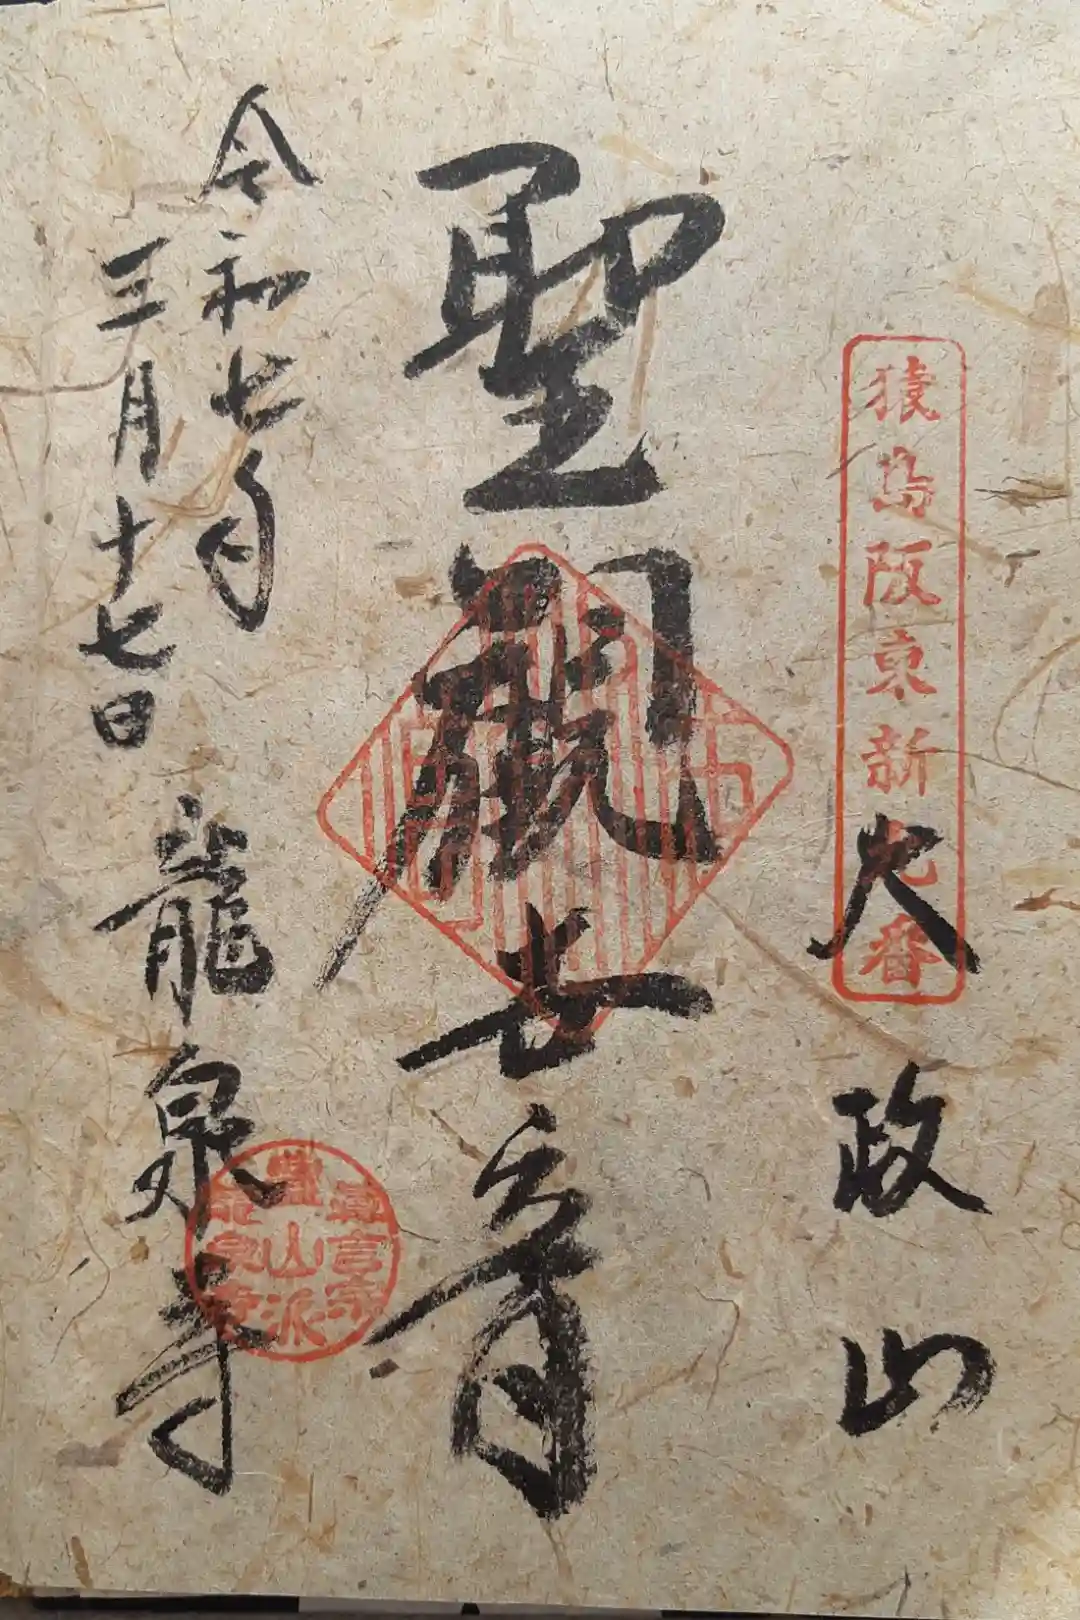 猿島阪東新九番
大政山
聖観世音
令和七年
三月十七日
龍泉寺
真言宗
豊山派
龍泉寺